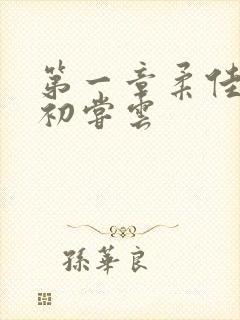 第一章柔佳
初嘗雲
孫華良